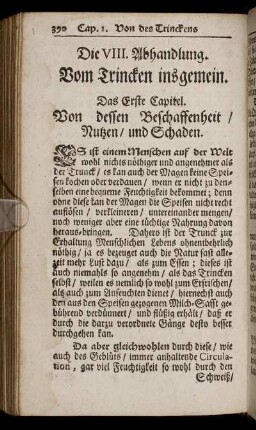 390 Cap. 1. Von des Trinckens
Die VIII. Abhandlung.
Vom Trincken insgemein.
Das Erste Capitel.
Von dessen Beschaffenheit /
Nutzen / und Schaden.
ES ist einem Menschen auf der Welt
wohl nichts nöthiger und angenehmer als
der Trunck / es kan auch der Magen keine Spei-
sen kochen oder verdauen / wenn er nicht zu den-
selben eine bequeme Feuchtigkeit bekommet; denn
ohne diese kan der Magen die Speisen nicht recht
auflösen / verkleineren / untereinander mengen /
noch weniger aber eine tüchtige Nahrung davon
heraus-bringen. Dahero ist der Trunck zur
Erhaltung Menschlichen Lebens ohnentbehrlich
nöthig / ja es bezeuget auch die Natur fast alle-
zeit mehr Lust dazu / als zum Essen; dieses ist
auch niemahls so angenehm / als das Trincken
selbst / weilen es nemlich so wohl zum Erfrischen /
als auch zum Anfeuchten dienet / hiernechst auch
den aus den Speisen gezogenen Milch-Safft ge-
bührend verdünnert / und flüßig erhält / daß er
durch die darzu verordnete Gänge desto besser
durchgehen kan.
Da aber gleichwohlen durch diese / wie
auch des Geblüts / immer anhaltende Circula-
tion, gar viel Feuchtigkeit so wohl durch den
Schweiß /